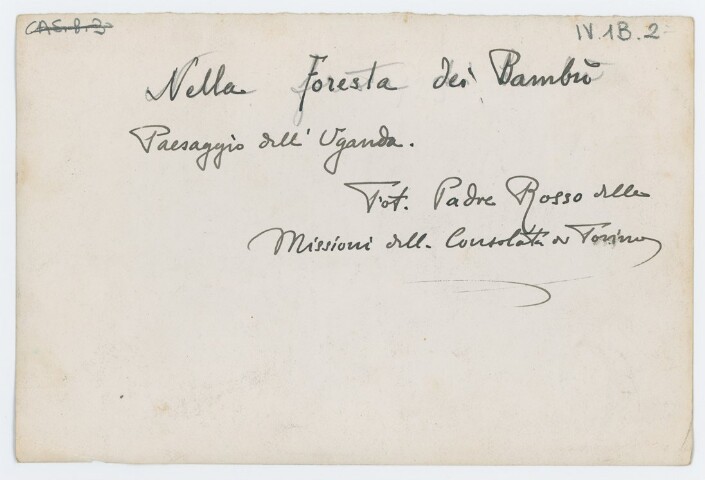 CAS.8.3
IV.1B.2
Nella Foresta dei Bambù
Paesaggio dell' Uganda.
Fot. Padre Rosso delle
Missioni della Consolata di Torino